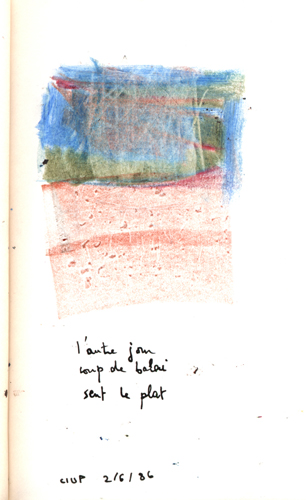 l'autre jour
coup de balai
sent le plat
CIUP 2/6/86